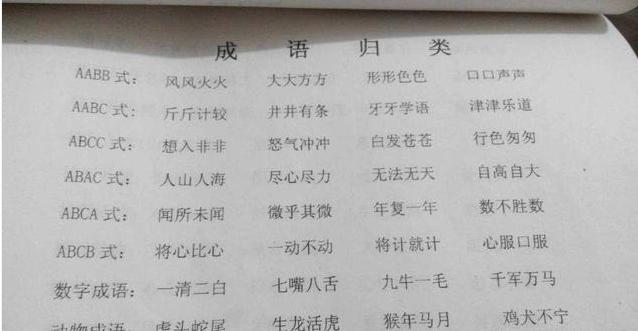 成语归类
AABB式： 风风火火 大大方方 形形色色 口口声声
AABC式： 斤斤计较 井井有条 牙牙学语 津津乐道
ABCC式： 想入非非 怒气冲冲 白发苍苍 行色匆匆
ABAC式： 人山人海 尽心尽力 无法无天 自高自大
ABCA式： 闻所未闻 微乎其微 年复一年 数不胜数
ABCB式： 将心比心 一动不动 将计就计 心服口服
数字成语： 一清二白 七嘴八舌 九牛一毛 千军万马
动物成语： 虎头蛇尾 生龙活虎 猴年马月 鸡犬不宁